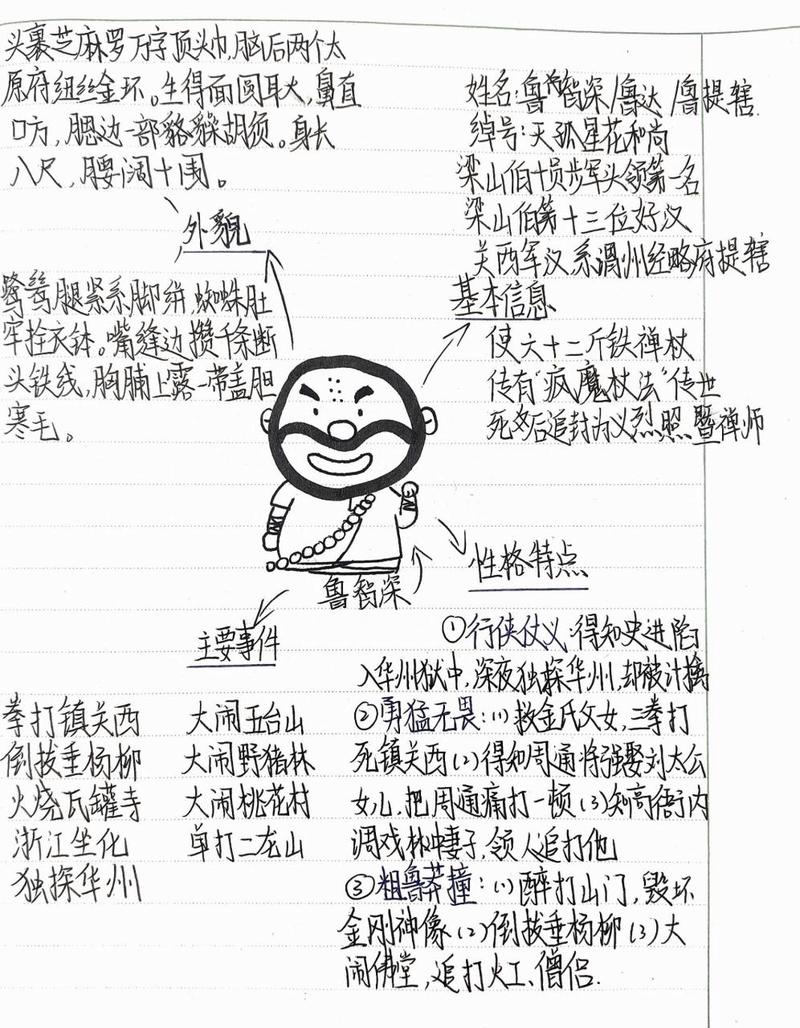 头裹芝麻罗万字顶头巾,脑后两个太
原府纽丝金环。生得面圆耳大,鼻直
口方,腮边一部貉𧳅胡须。身长
八尺,腰阔十围。
外貌
鹭鸶腿紧系脚絣,蜘蛛肚
牢拴衣钵。嘴缝边攒千条断
头铁线,胸脯上露一带盖胆
寒毛。
姓名:鲁智深/鲁达/鲁提辖
绰号:天孤星花和尚
梁山伯十员步军头领第一名
梁山伯第十三位好汉
关西军汉,系渭州经略府提辖
基本信息
使六十二斤铁禅杖
传有“疯魔杖法”传世
死后追封为义烈照暨禅师
鲁智深
性格特点
①行侠仗义:得知史进陷
入华州狱中,深夜独探华州,却被计擒
②勇猛无畏:(1)救金氏父女,三拳打
死镇关西(2)得知周通将强娶刘太公
女儿,把周通痛打一顿(3)知高衙内
调戏林冲妻子,领人追打他
③粗鲁莽撞:(1)醉打山门,毁坏
金刚神像(2)倒拔垂杨柳(3)大
闹佛堂,追打火工、僧侣.
主要事件
拳打镇关西 大闹五台山
倒拔垂杨柳 大闹野猪林
火烧瓦罐寺 大闹桃花村
浙江坐化 单打二龙山
独探华州